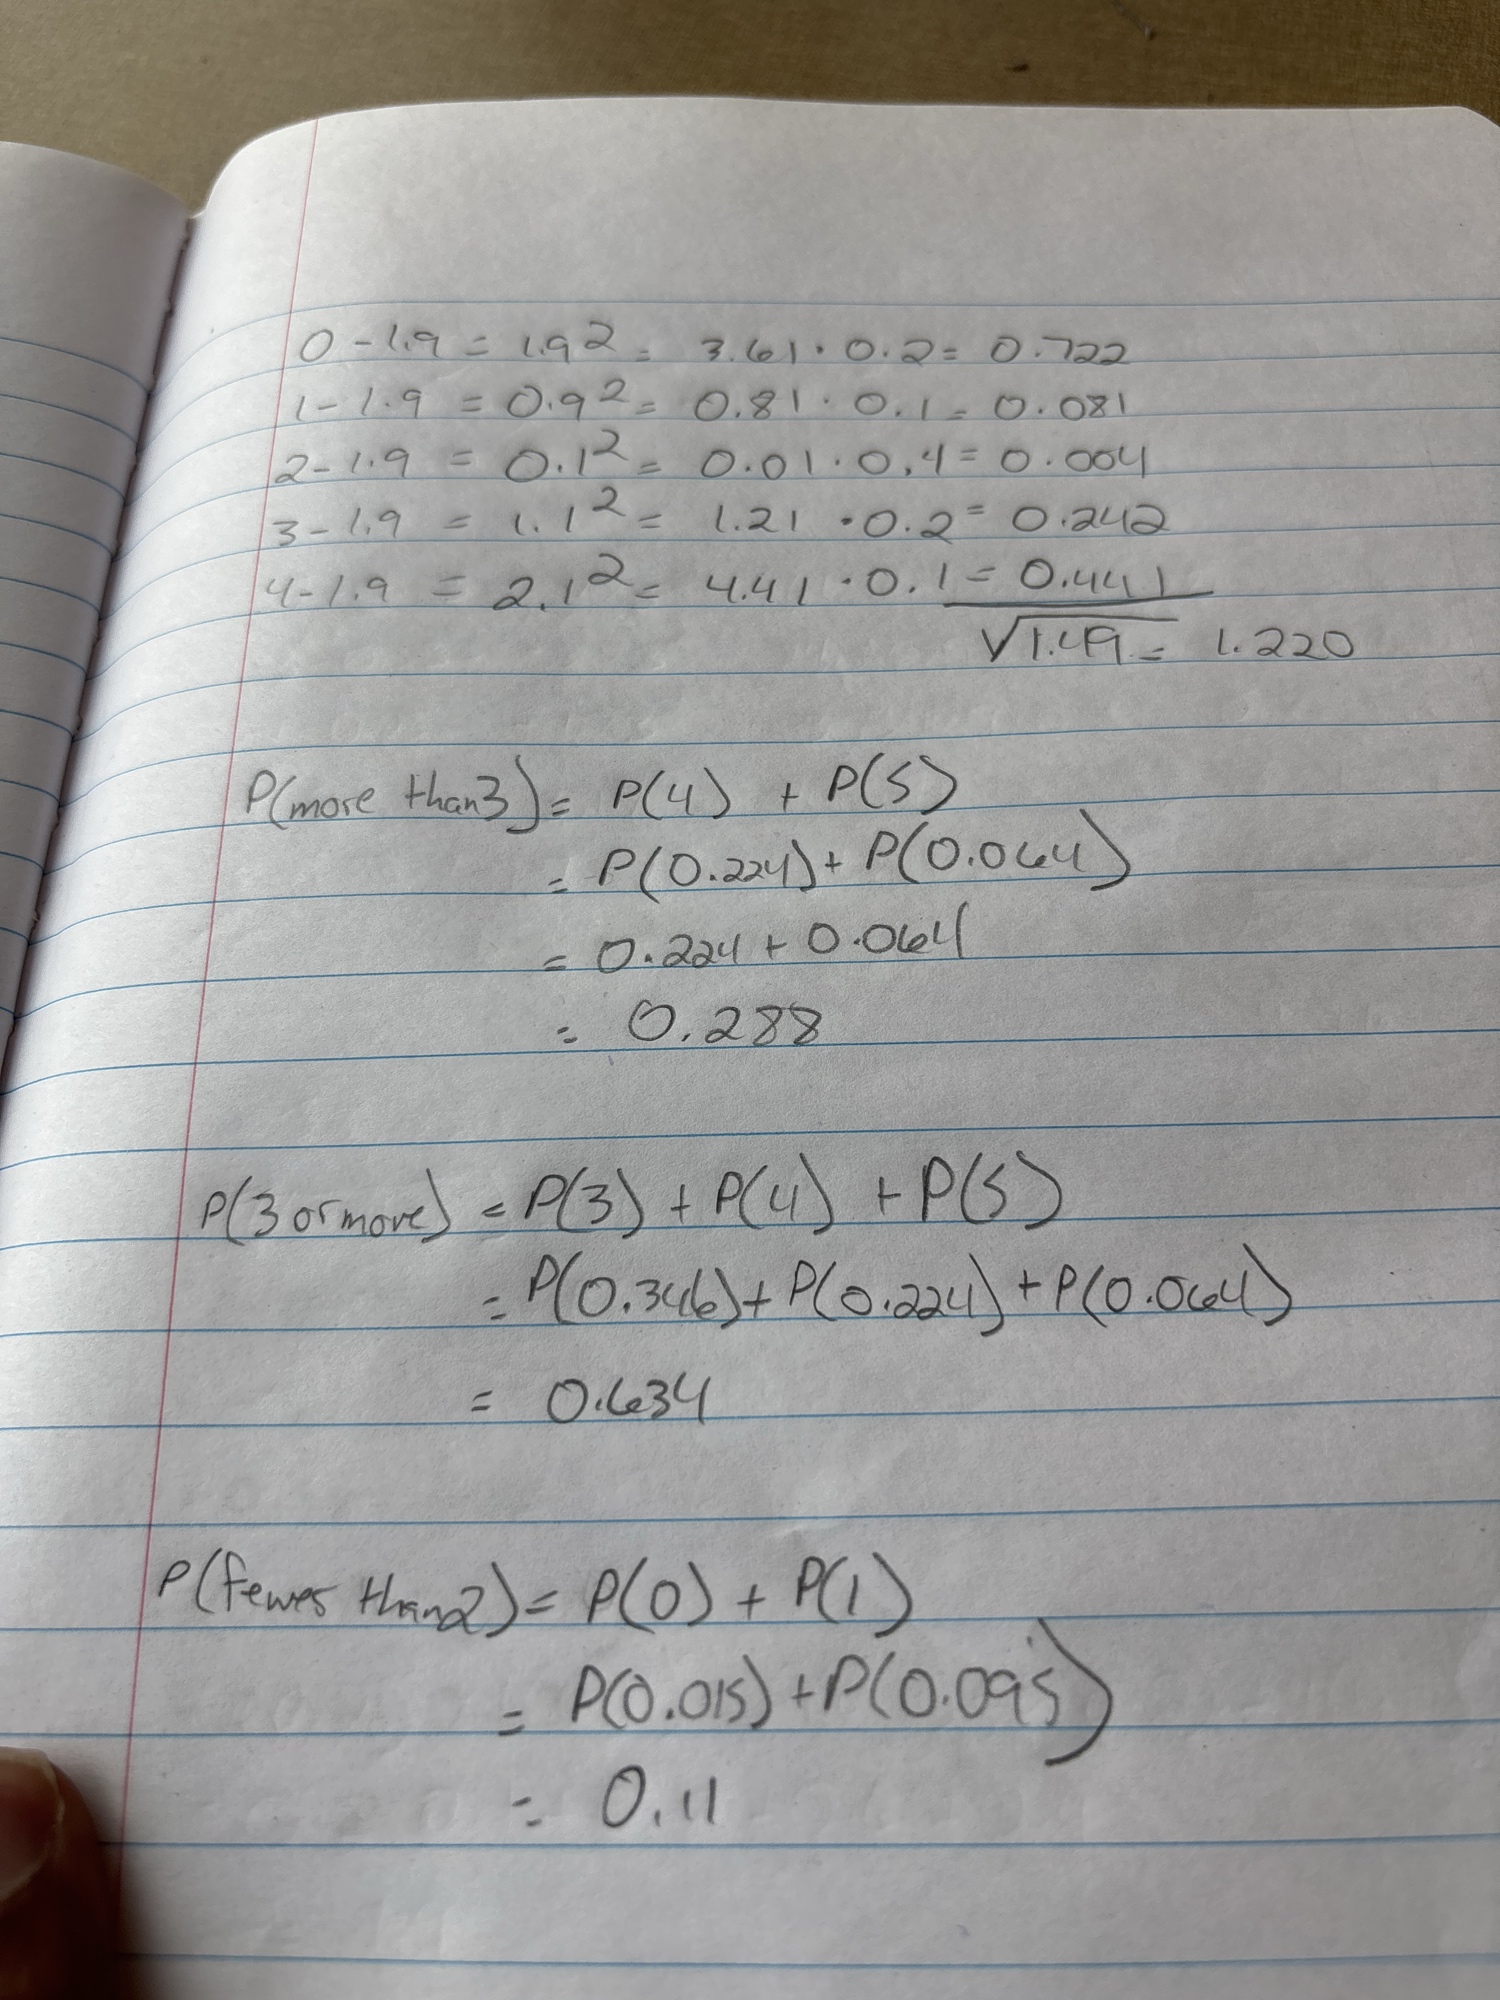 0 - 1.9 = 1.9² = 3.61 · 0.2 = 0.722
1 - 1.9 = 0.9² = 0.81 · 0.1 = 0.081
2 - 1.9 = 0.1² = 0.01 · 0.4 = 0.004
3 - 1.9 = 1.1² = 1.21 · 0.2 = 0.242
4 - 1.9 = 2.1² = 4.41 · 0.1 = 0.441
√1.49 = 1.220
P(more than 3) = P(4) + P(5)
= P(0.224) + P(0.064)
= 0.224 + 0.064
= 0.288
P(3 or more) = P(3) + P(4) + P(5)
= P(0.346) + P(0.224) + P(0.064)
= 0.634
P(fewer than 2) = P(0) + P(1)
= P(0.015) + P(0.095)
= 0.11